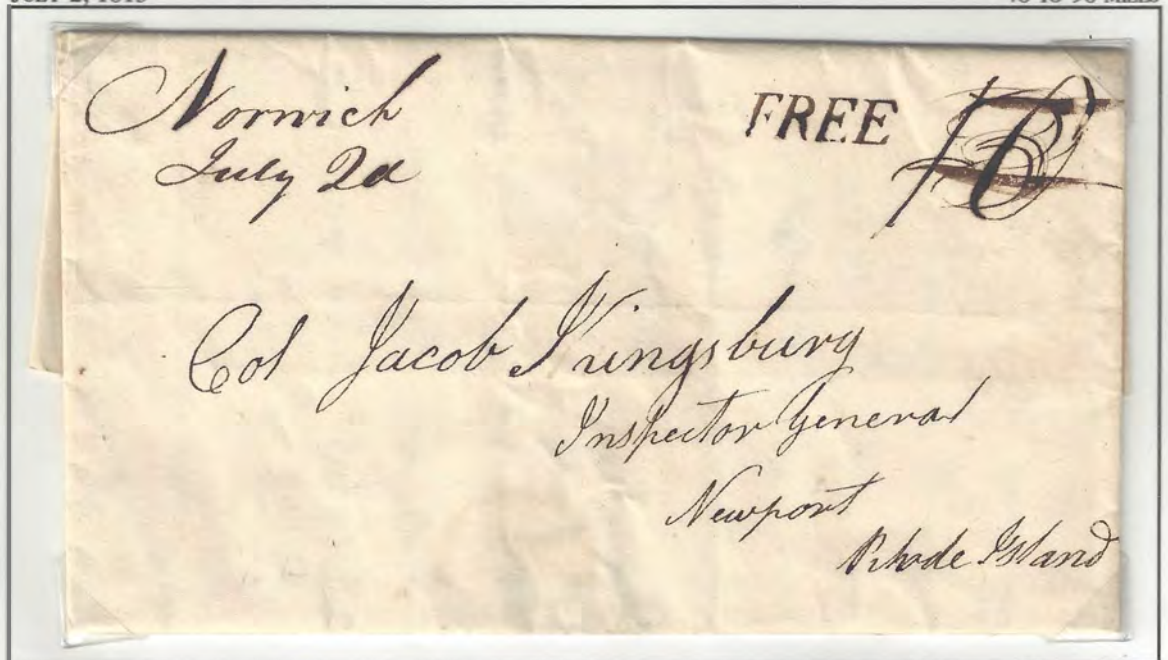 Norwich
July 2d
FREE
10
Col Jacob Kingsbury
Inspector General
Newport
Rhode Island